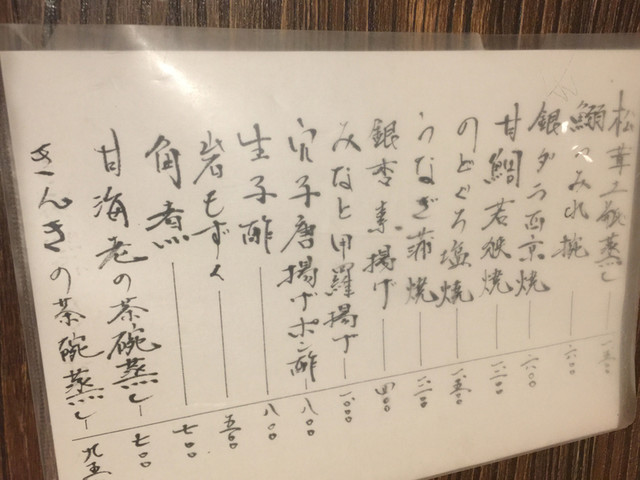 松茸土瓶蒸し 一、五〇
鰯つみれ椀 六〇〇
銀ダラ西京焼 一、二〇〇
甘鯛若狭焼 一、三〇〇
のどぐろ塩焼 一、五〇〇
うなぎ蒲焼
銀杏素揚げ 四〇〇
みなと甲羅揚げ 一、〇〇〇
穴子唐揚げポン酢 八〇〇
生子酢 八〇〇
岩もずく 五〇〇
角煮 七〇〇
甘海老の茶碗蒸し 七〇〇
きんきの茶碗蒸し 九五